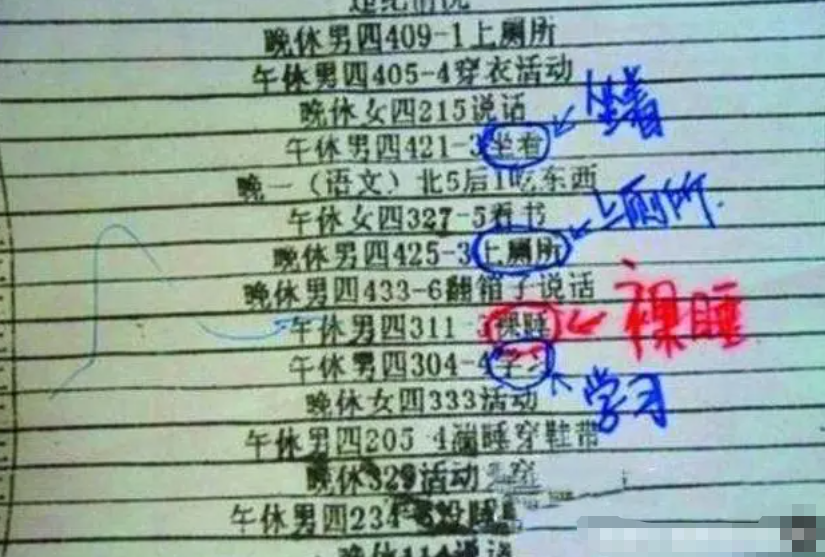 违纪情况
晚休男四409-1上厕所
午休男四405-4穿衣活动
晚休女四215说话
午休男四421-3坐着 坐着
晚一（语文）北5后1吃东西
午休女四327-5看书
晚休男四425-3上厕所 上厕所
晚休男四433-6翻箱子说话
午休男四311- 裸睡 裸睡
午休男四304-4学习 学习
晚休女四333活动
午休男四205 4 睡穿鞋带
晚休329活动
午休男四234-